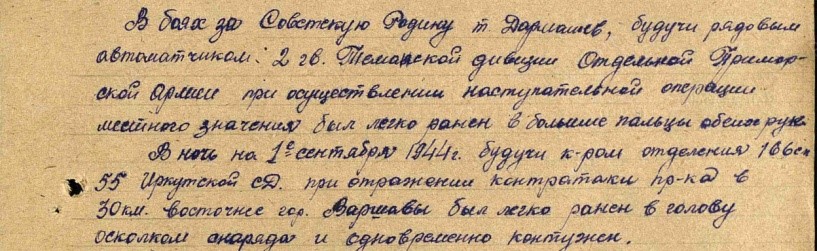 В боях за Советскую Родину т. Дармашев, будучи рядовым
автоматчиком 2 гв. Таманской дивизии Отдельной Примор-
ской Армии при осуществлении наступательной операции
местного значения был легко ранен в большие пальцы обеих рук.
В ночь на 1е сентября 1944г. будучи к-ром отделения
55 Иркутской сД. при отражении контратаки пр-ка в
30км. восточнее гор. Варшавы был легко ранен в голову
осколком снаряда и одновременно контужен.